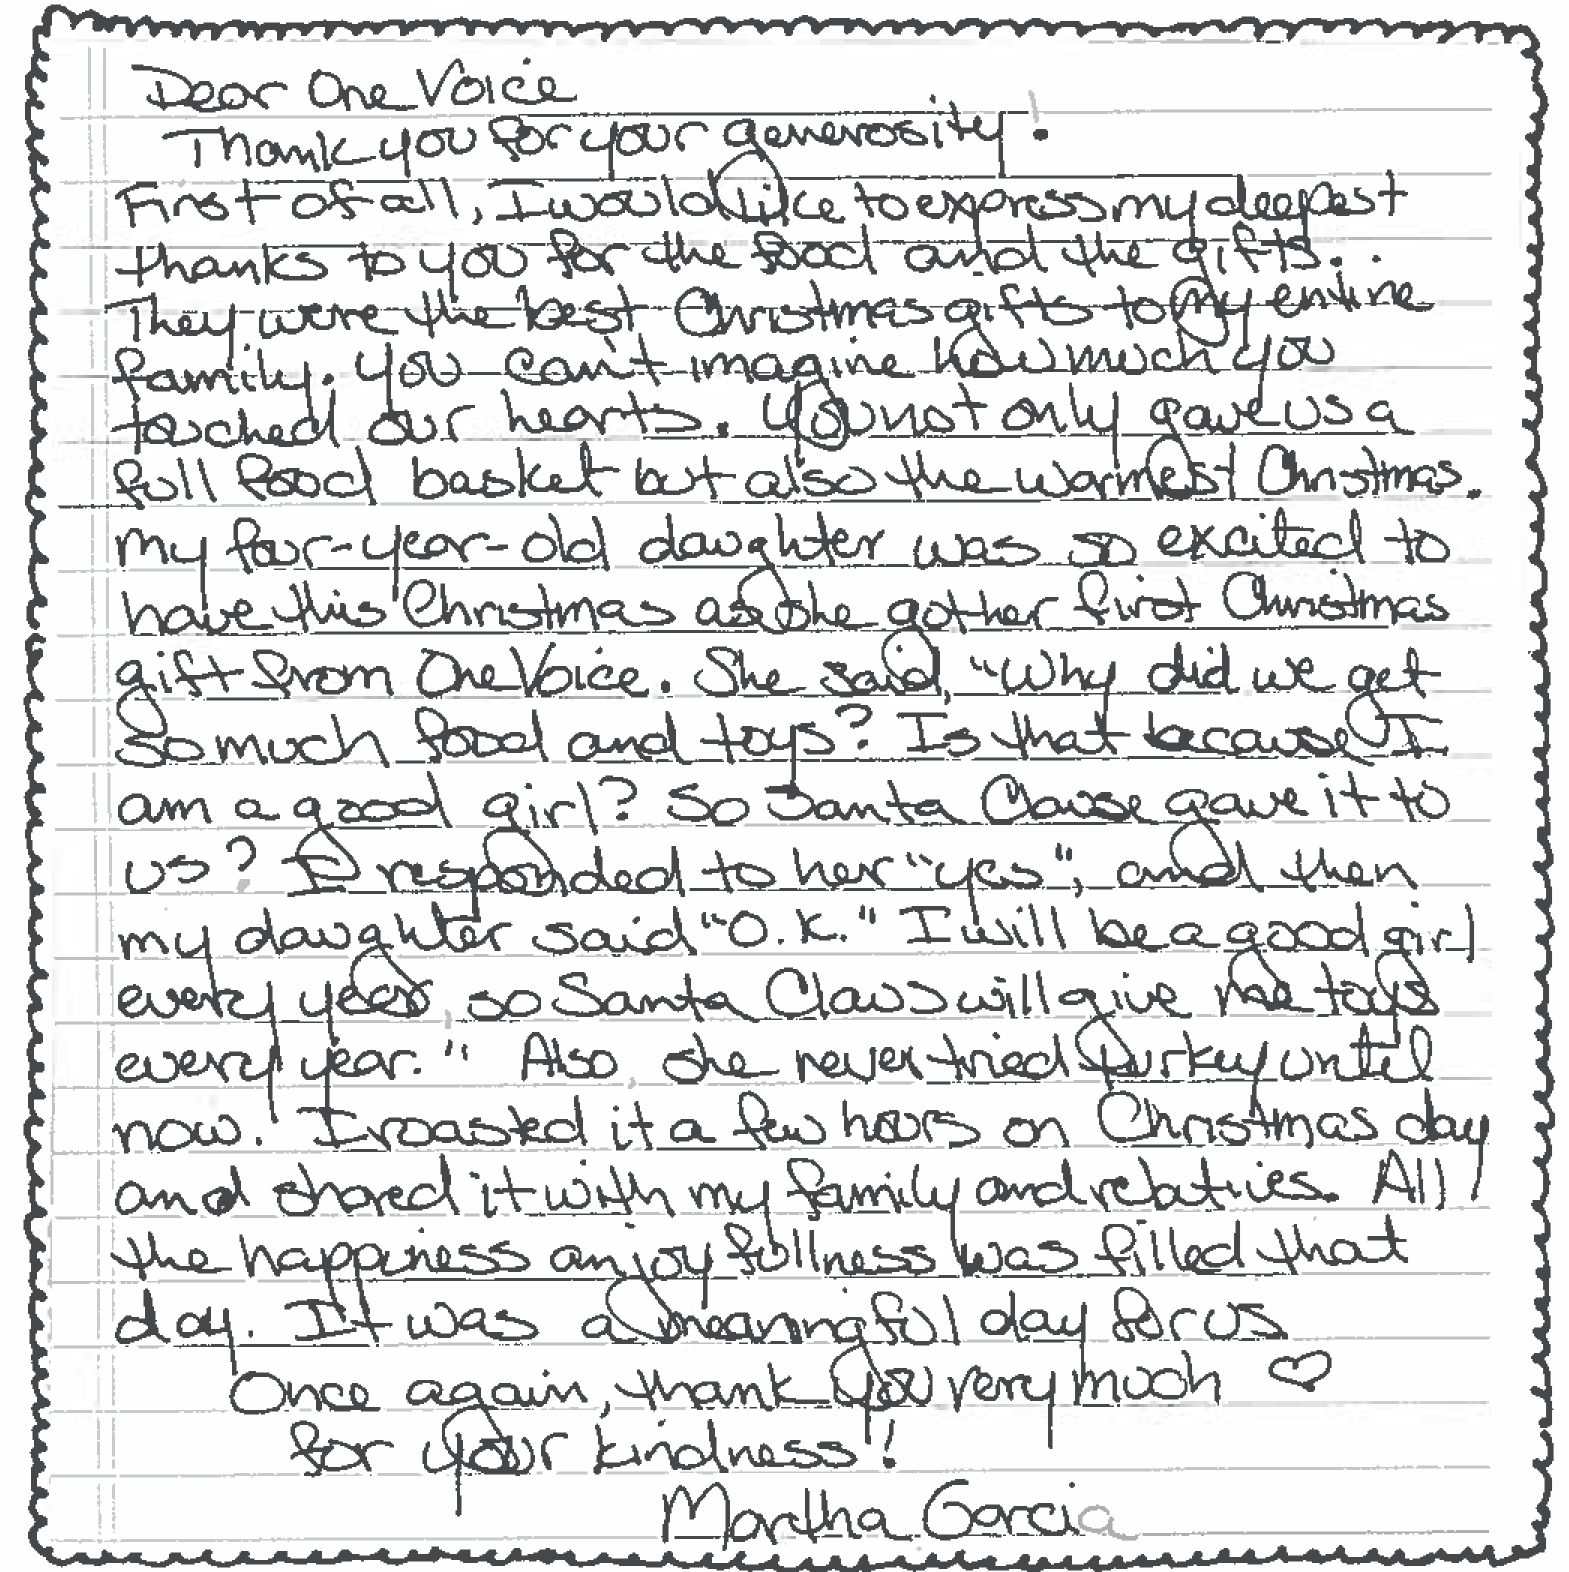 Dear One Voice
Thank you for your generosity.
First of all, I would like to express my deepest
thanks to you for the food and the gifts.
They were the best Christmas gifts to my entire
family. You can't imagine how much you
touched our hearts. You not only gave us a
full food basket but also the warmest Christmas.
My four-year-old daughter was so excited to
have this Christmas as she got her first Christmas
gift from One Voice. She said, "Why did we get
so much food and toys? Is that because I
am a good girl? So Santa Clause gave it to
us? I responded to her "yes", and then
my daughter said "O.K." I will be a good girl
every year so Santa Claus will give me toys
every year." Also she never tried turkey until
now. I roasted it a few hours on Christmas day
and shared it with my family and relatives. All
the happiness an joyfullness was filled that
day. It was a meaningful day for us
Once again, thank you very much ♡
for your kindness!
Martha Garcia